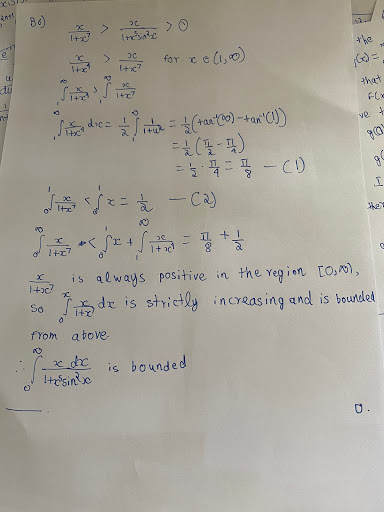 8b) x/(1+x⁷) > x/(1+x⁵sin²x) > 0
x/(1+x⁴) > x/(1+x⁷) for x ∈ (1,∞)
∫₁^∞ x/(1+x⁴) > ∫₁^∞ x/(1+x⁷)
∫₁^∞ x/(1+x⁴) dx = 1/2 ∫₁^∞ 1/(1+u²) = 1/2 (tan⁻¹(∞) - tan⁻¹(1))
= 1/2 (π/2 - π/4)
= 1/2 · π/4 = π/8 — (1)
∫₀¹ x/(1+x⁷) < ∫₀¹ x = 1/2 — (2)
∫₀^∞ x/(1+x⁷) < ∫₀¹ x + ∫₁^∞ x/(1+x⁴) = π/8 + 1/2
x/(1+x⁷) is always positive in the region [0,∞),
so ∫₀ˣ x/(1+x⁷) dx is strictly increasing and is bounded
from above.
∴ ∫₀^∞ x dx/(1+x⁵sin²x) is bounded